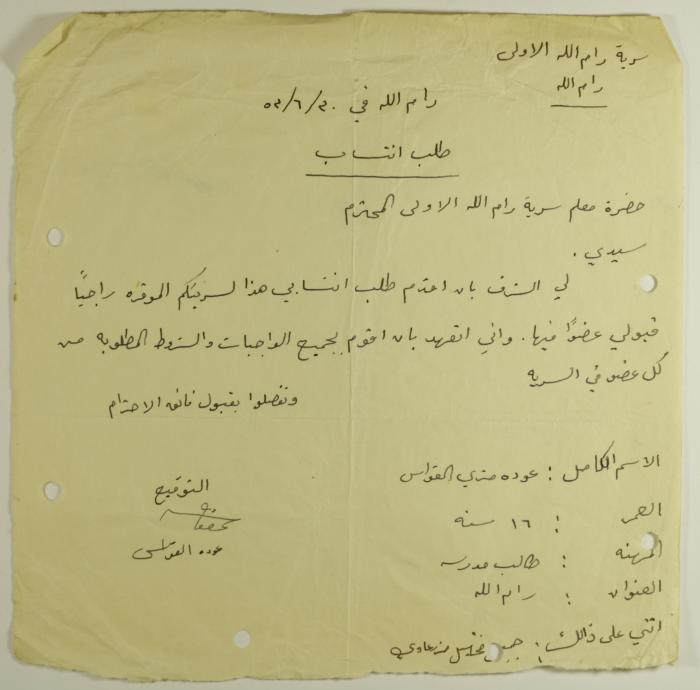 سرية رام الله الاولى
رام الله
رام الله في ٥٣/٦/٣٠
طلب انتساب
حضرة معلم سرية رام الله الاولى المحترم
سيدي .
لي الشرف بان اقدم طلب انتسابي هذا لسريتكم الموقره راجياً
قبولي عضوًا فيها . واني اتعهد بان اقوم بجميع الواجبات والشروط المطلوبه من
كل عضو في السريه
وتفضلوا بقبول فائق الاحترام
الاسم الكامل : عوده متري القواس
العمر : ١٦ سنه
المهنه : طالب مدرسه
العنوان : رام الله
التوقيع
عوده القواس
اثني على ذالك :